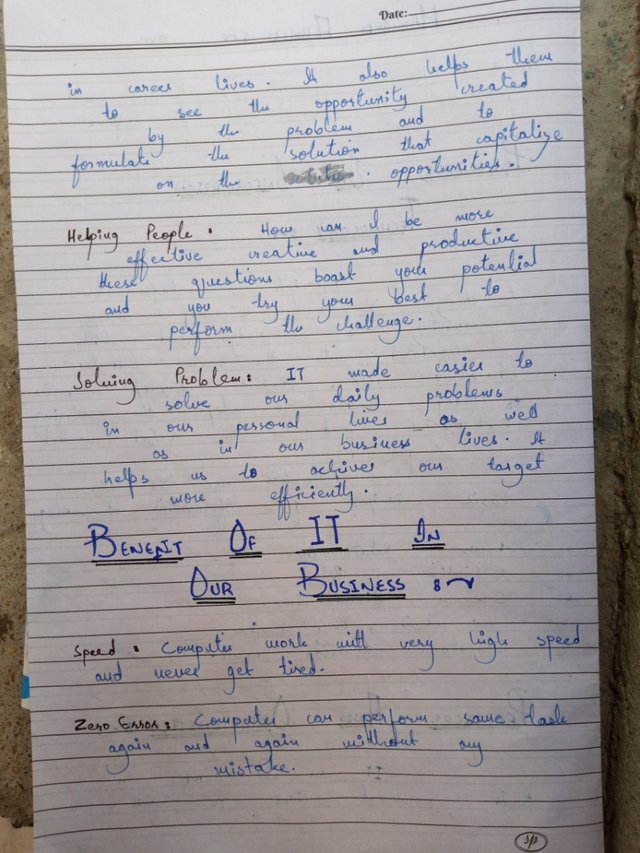 Date:
in career lives. It also helps them
to see the opportunity created
by the problem and to
formulate the solution that capitalize
on the opportunities.
Helping People : How can I be more
effective creative and productive
these questions boast your potential
and you try your best to
perform the challenge.
Solving Problem: IT made easier to
solve our daily problems
in our personal lives as well
as in our business lives. It
helps us to achives our target
more efficiently.
BENEFIT OF IT IN
OUR BUSINESS :~
Speed : Computer work with very high speed
and never get tired.
ZERO ERROR: Computer can perform same task
again and again without any
mistake.
SP